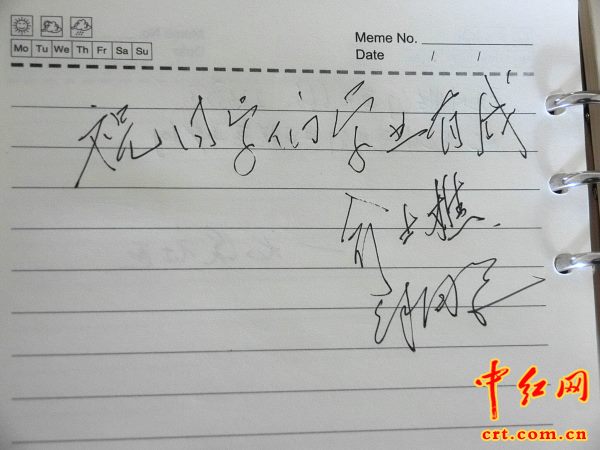 Meme No.
Mo Tu We Th Fr Sa Su
Date / /
祝同学们学业有成
中红网
crt.com.cn